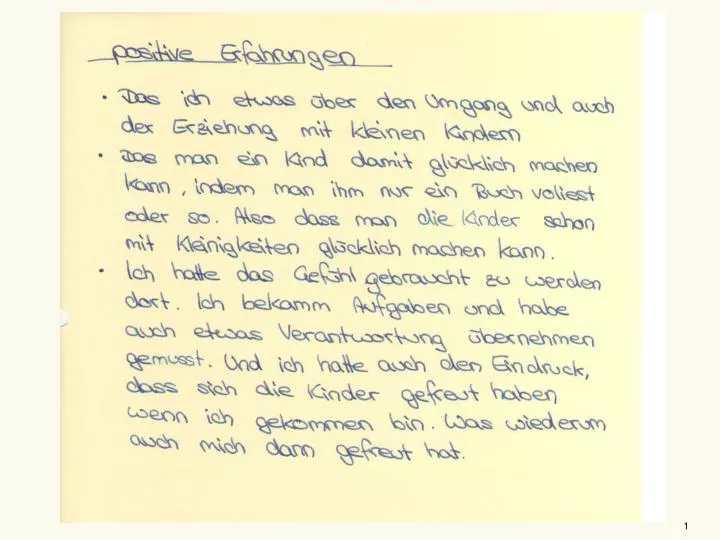 positive Erfahrungen
• Das ich etwas über den Umgang und auch
der Erziehung mit kleinen Kindern
• Das man ein Kind damit glücklich machen
kann, indem man ihm nur ein Buch voliest
oder so. Also dass man die Kinder schon
mit Kleinigkeiten glücklich machen kann.
• Ich hatte das Gefühl gebraucht zu werden
dort. Ich bekamm Aufgaben und habe
auch etwas Verantwortung übernehmen
gemusst. Und ich hatte auch den Eindruck,
dass sich die Kinder gefreut haben
wenn ich gekommen bin. Was wiederum
auch mich dann gefreut hat.
1